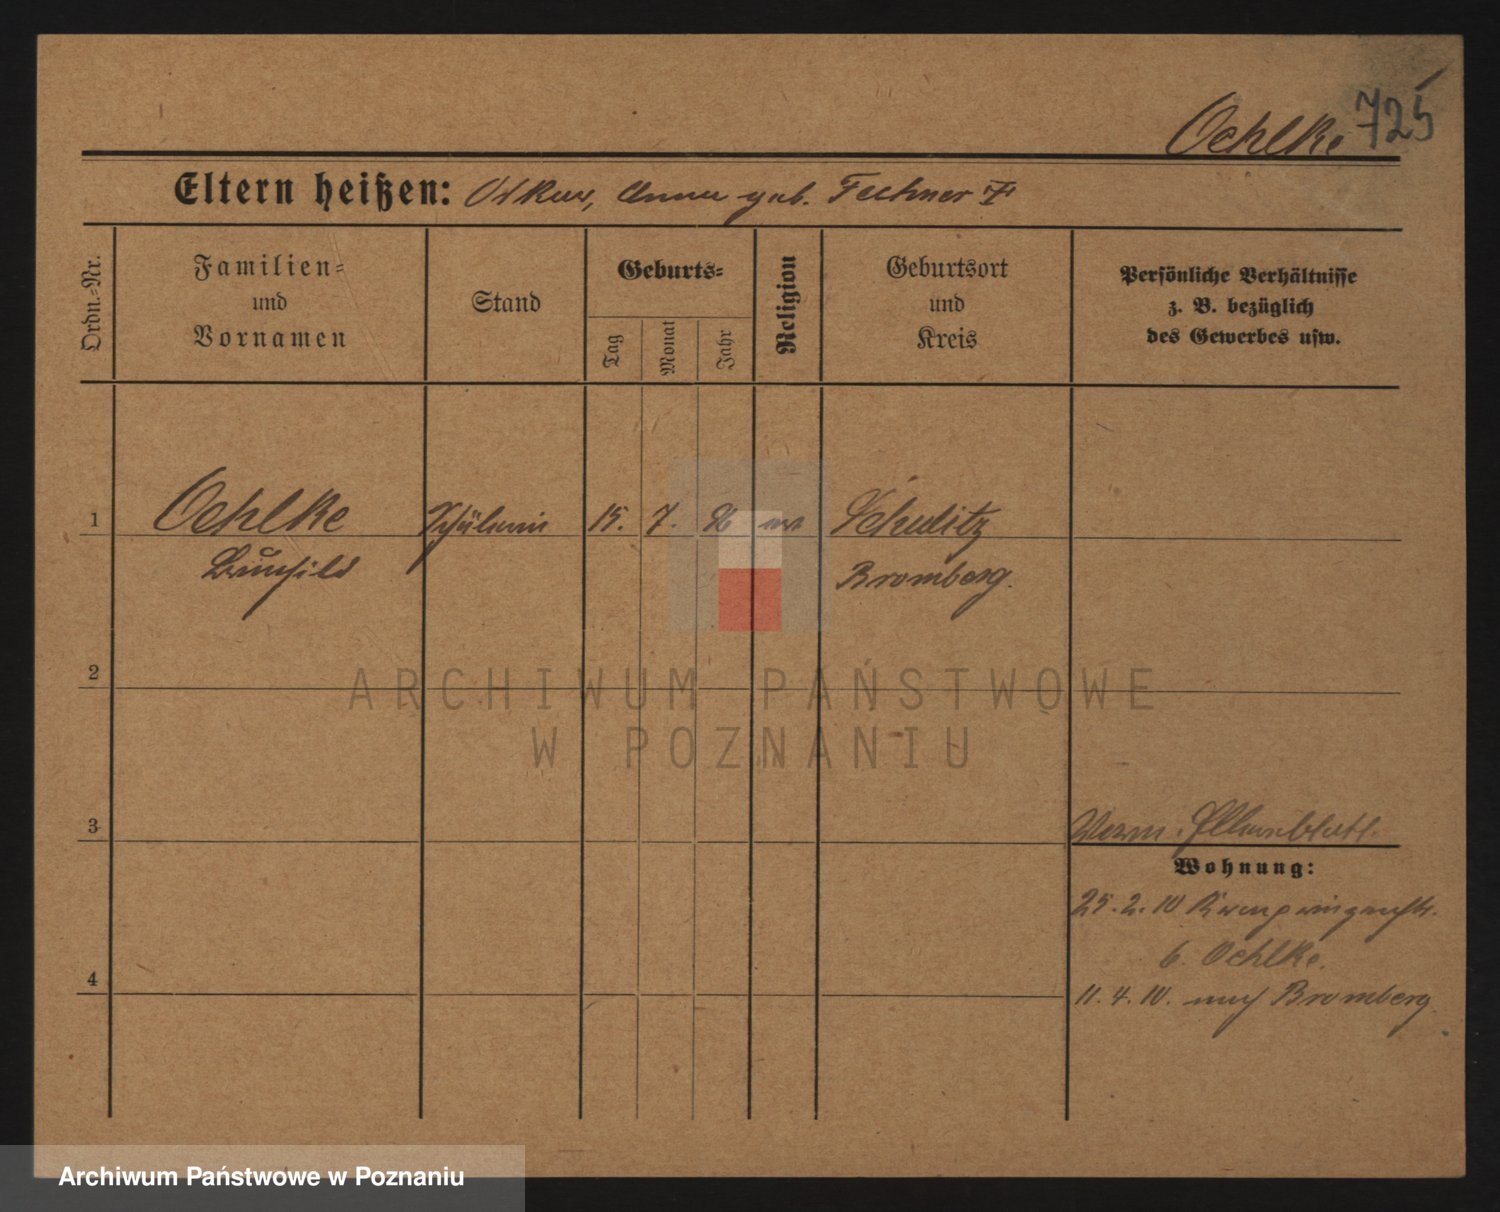 Oehlke 725
Eltern heißen: Oskar, Anna geb. Fechner
Ordn.-Nr.
Familien-
und
Vornamen
Stand
Geburts-
Tag
Monat
Jahr
Religion
Geburtsort
und
Kreis
Persönliche Verhältnisse
z. B. bezüglich
des Gewerbes usw.
1 Oehlke Schülerin 15. 7. 96 ev Schulitz
Brunhild Bromberg.
2
ARCHIWUM PAŃSTWOWE
W POZNANIU
3
Wohnung:
25.2.10
6. Oehlke.
4
11.4.10. nach Bromberg
Archiwum Państwowe w Poznaniu